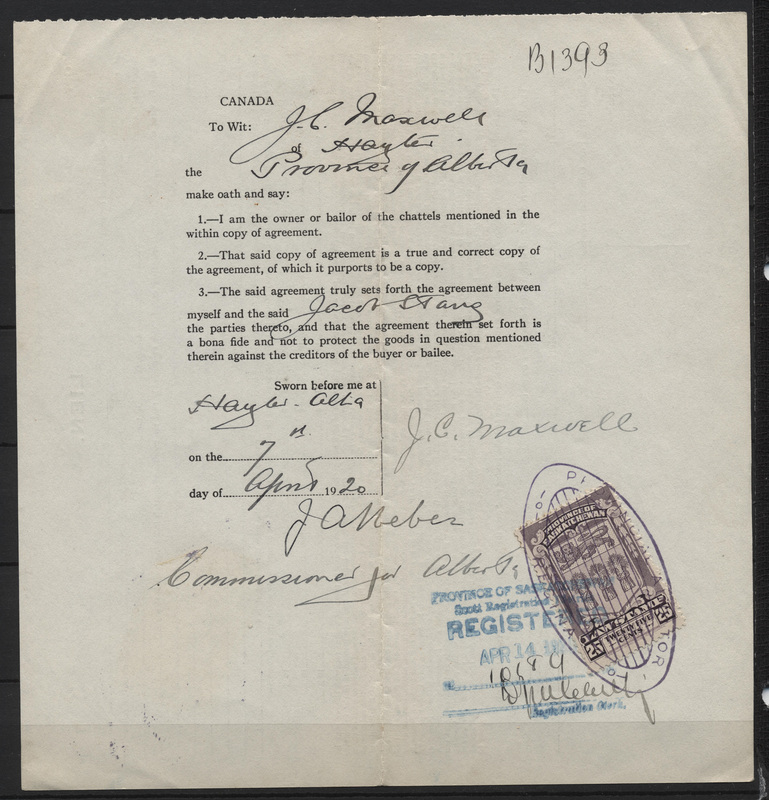 B1393
CANADA
To Wit: J. C. Maxwell
of Hayter
the Province of Alberta
make oath and say:
1.—I am the owner or bailor of the chattels mentioned in the
within copy of agreement.
2.—That said copy of agreement is a true and correct copy of
the agreement, of which it purports to be a copy.
3.—The said agreement truly sets forth the agreement between
myself and the said Jacob Stang
the parties thereto, and that the agreement therein set forth is
a bona fide and not to protect the goods in question mentioned
therein against the creditors of the buyer or bailee.
Sworn before me at
Hayter - Alta
on the 7th
day of April 1920
J. C. Maxwell
J A Weber
Commissioner for Alberta
PROVINCE OF
SASKATCHEWAN
LAW STAMP
25 TWENTY FIVE CENTS 25
PROVINCE OF SASKATCHEWAN
Scott Registration
REGISTERED
APR 14
Registration Clerk.